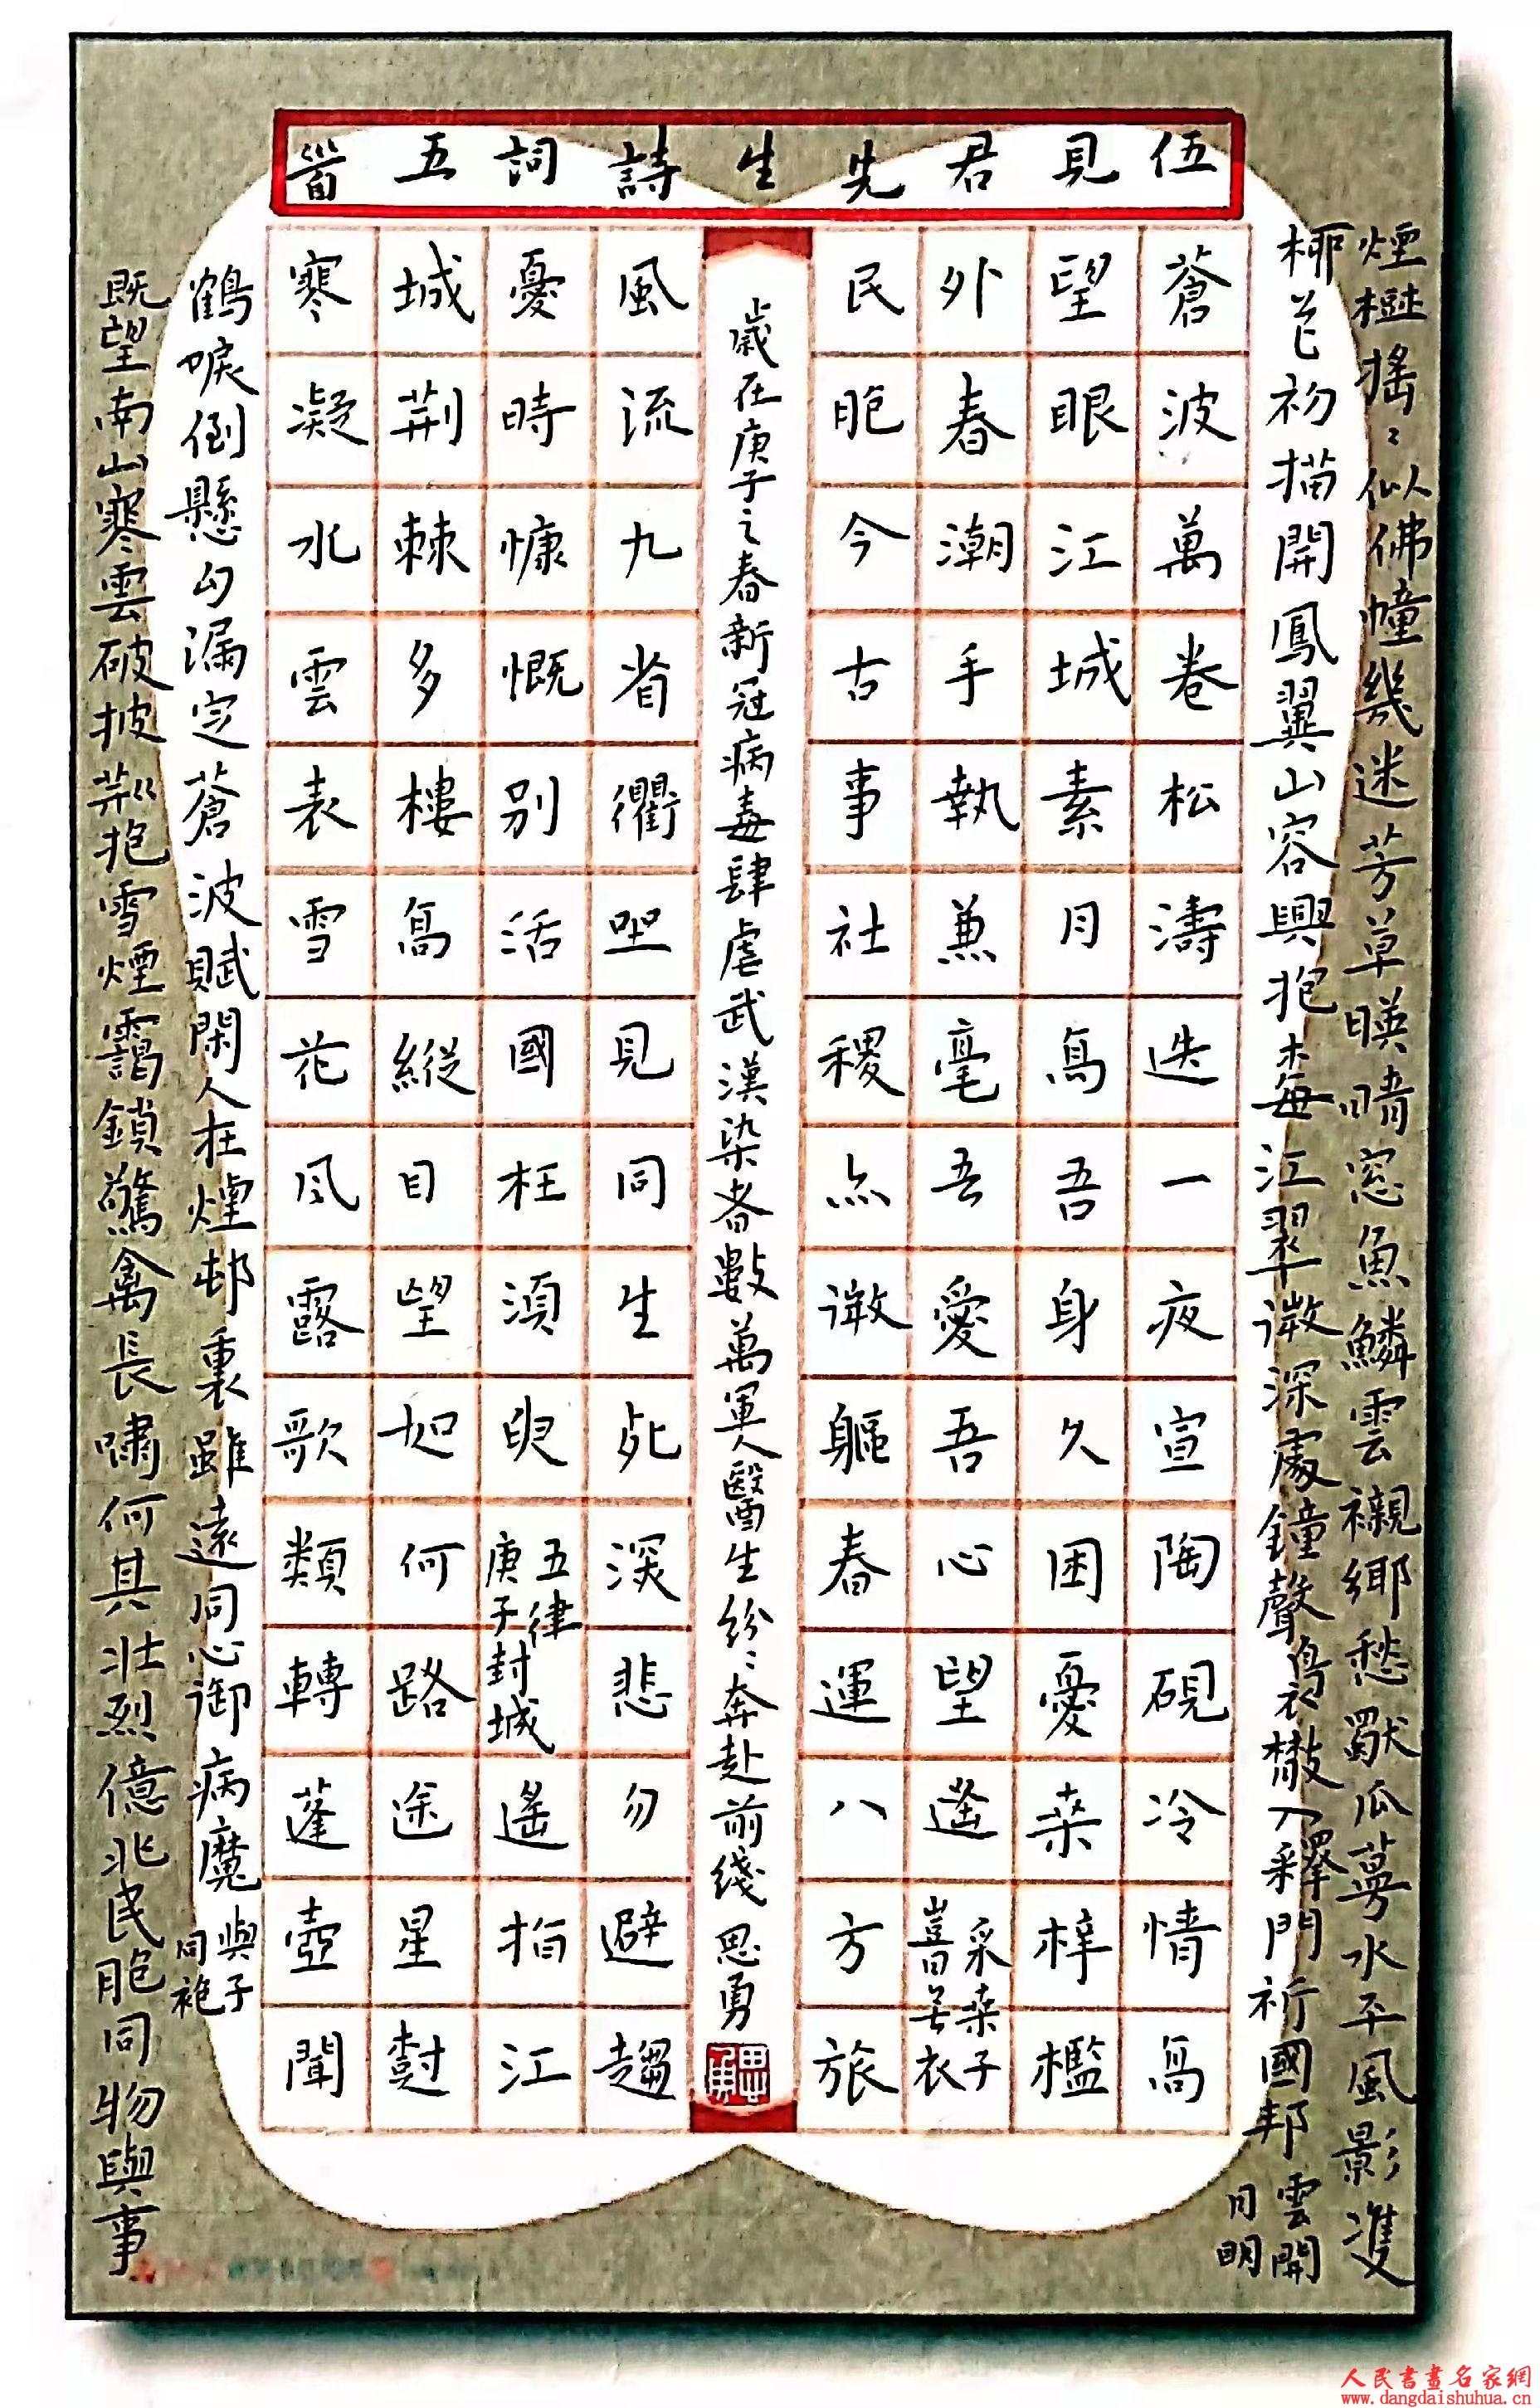 伍見君先生詩詞五首
煙樹搖〻似佛幢幾迷芳草暎晴窓魚鱗雲襯鄉愁獸瓜蔓水平風影雙
柳芒初描開鳳翼山容興抱梅江翠微深處鐘聲鳥衣散入釋門祈國邦
雲開
月明
蒼波萬卷松濤迭一夜宣陶硯冷情高
望眼江城素月鳥吾身久困憂桒梓檻
外春潮手執兼毫吾愛吾心望遙
采桒子
豈曰无衣
民胞今古事社稷点微軀春運八方旅
歲在庚子之春新冠病毒肆虐武漢染者數萬軍人醫生紛〻奔赴前綫思勇
風流九省衢咫見同生死深悲勿避趨
憂時慷慨別活國枉須臾
五律
庚子封城
遙指江
城荊棘多樓高縱目望如何路途星尌
寒凝水雲表雪花風露歌類轉蓬壺聞
鶴唳倒懸勾漏定蒼波賦閑人在煙邨裏雖遠同心御病魔
與子
同袍
既望南山寒雲破披荊抱雪煙靄鎖驚禽長嘯何其壯烈億兆民胞同物與事
人民書畫名家網
www.dangdaishuhua.cn